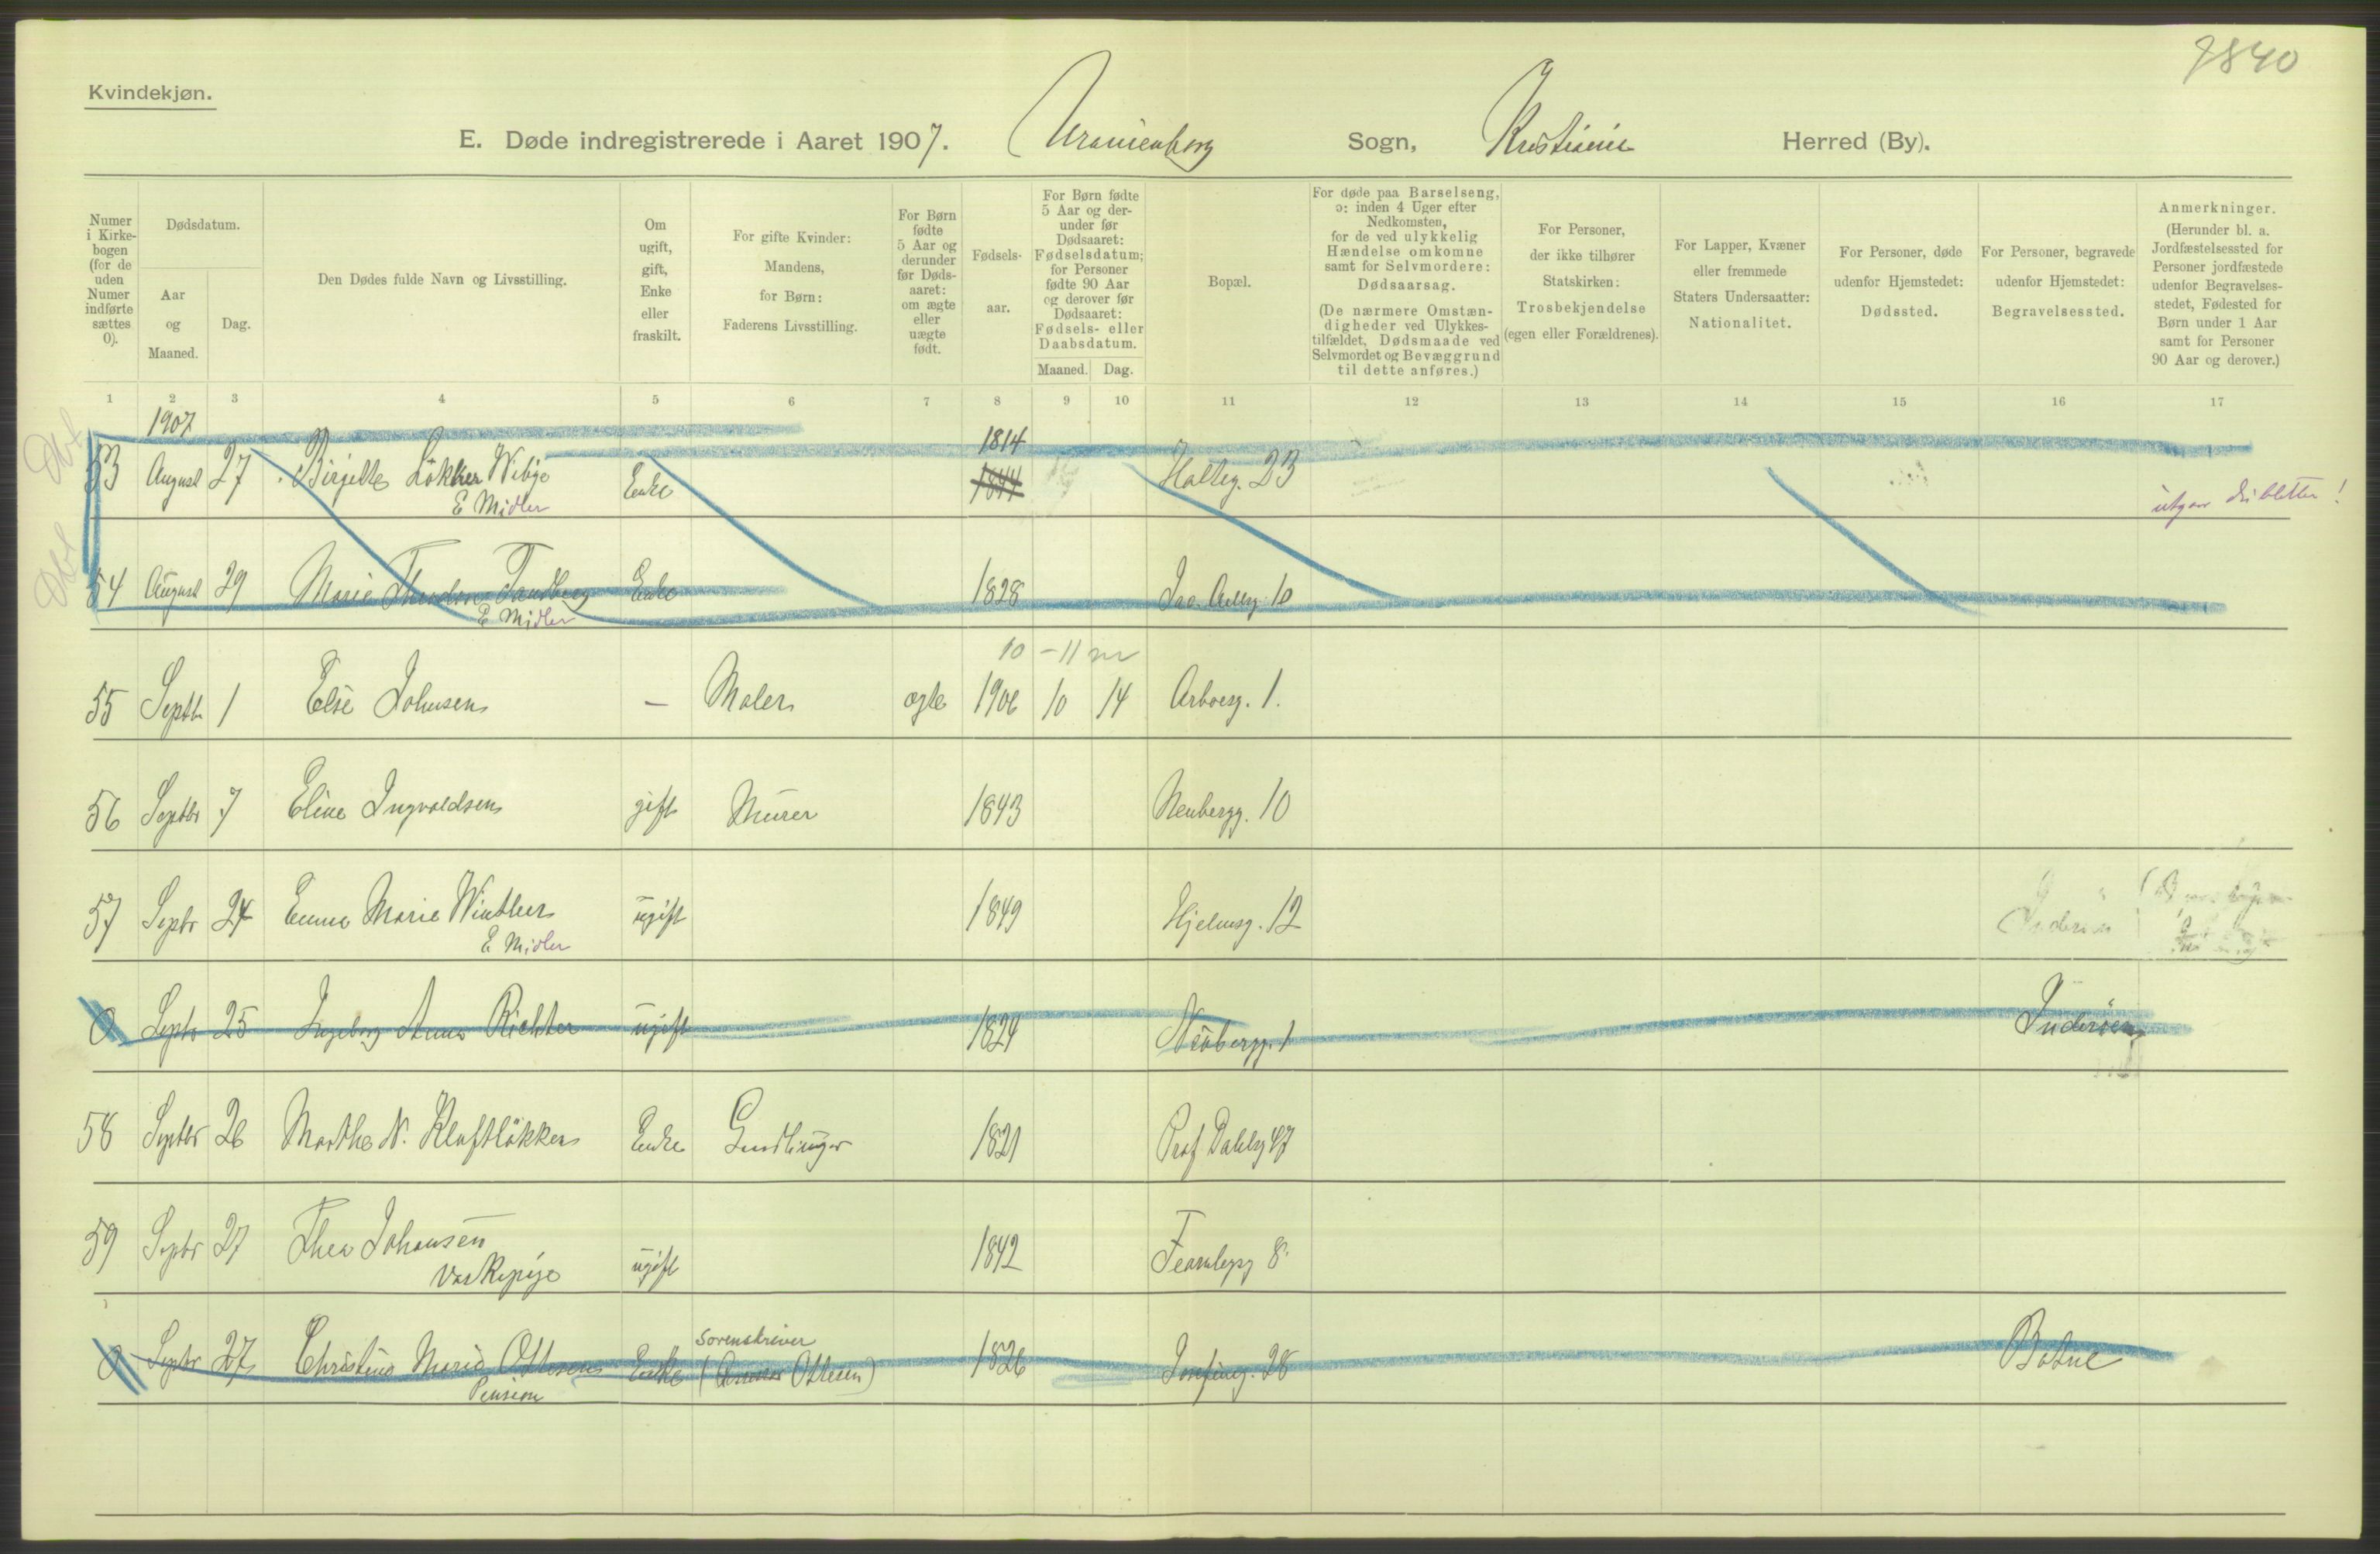 9840
Kvindekjøn.
E. Døde indregistrerede i Aaret 1907. Uranienborg Sogn, Kristiania Herred (By).
Numer i Kirkebogen (for de uden Numer indførte sættes 0).
Dødsdatum.
Aar og Maaned.
Dag.
Den Dødes fulde Navn og Livsstilling.
Om ugift, gift, Enke eller fraskilt.
For gifte Kvinder: Mandens, for Børn: Faderens Livsstilling.
For Børn fødte 5 Aar og derunder før Dødsaaret: om ægte eller uægte født.
Fødselsaar.
For Børn fødte 5 Aar og derunder før Dødsaaret: Fødselsdatum; for Personer fødte 90 Aar og derover før Dødsaaret: Fødsels- eller Daabsdatum.
Maaned. Dag.
Bopæl.
For døde paa Barselseng, ɔ: inden 4 Uger efter Nedkomsten, for de ved ulykkelig Hændelse omkomne samt for Selvmordere: Dødsaarsag.
(De nærmere Omstændigheder ved Ulykkestilfældet, Dødsmaade ved Selvmordet og Bevæggrund til dette anføres.)
For Personer, der ikke tilhører Statskirken: Trosbekjendelse (egen eller Forældrenes).
For Lapper, Kvæner eller fremmede Staters Undersaatter: Nationalitet.
For Personer, døde udenfor Hjemstedet: Dødssted.
For Personer, begravede udenfor Hjemstedet: Begravelsessted.
Anmerkninger. (Herunder bl. a. Jordfæstelsessted for Personer jordfæstede udenfor Begravelsesstedet, Fødested for Børn under 1 Aar samt for Personer 90 Aar og derover.)
1 2 3 4 5 6 7 8 9 10 11 12 13 14 15 16 17
1907
1814
Dbl 53 August 27 Birgitte Løkke Wibye Enke 1844 Holteg. 23
E Midler
utgaar dubletter!
Dbl 54 August 29 Marie Theodora Tandberg Enke 1828 Ivo. Aaseng. 10
E Midler
10 - 11 m
55 Septb 1 Else Johnsen — Maler ægte 1906 10 14 Arboesg. 1.
56 Septbr 7 Eline Ingvoldsen gift Murer 1843 Neubergg. 10
57 Septbr 24 Emma Marie Winther ugift 1849 Hjelmsg. 12
E Midler
0 Septbr 25 Ingeborg Anna Richter ugift 1824 Neubergg. 1 Inderøen
58 Septbr 26 Marthe N. Kloftløkken Enke 1821 Prof Dahlsg 47
59 Septbr 27 Thea Johansen ugift 1842 Fearnleysg 8.
Vaskepige
Sorenskriver
0 Septbr 27 Christine Marie Ottesen Enke ( Ottesen) 1826 Josefineg. 28 Botne
Pension